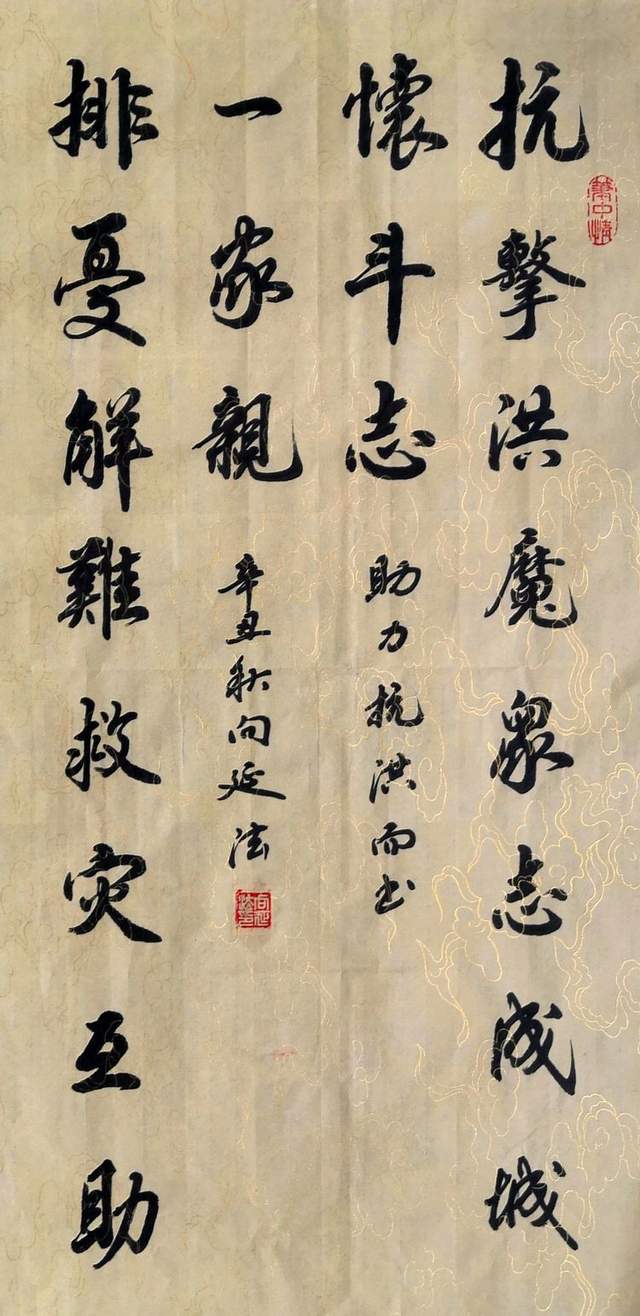 抗擊洪魔眾志成城
懷斗志
助力抗洪而书
排憂解難救灾互助
一家親
辛丑秋向延法
向延法印